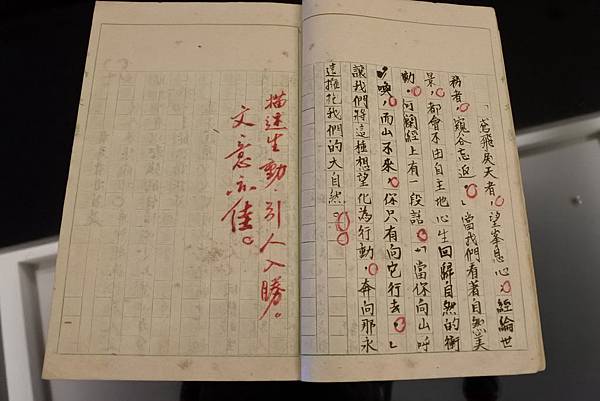 「鳶飛戾天者，望峯息心；經綸世
務者，窺谷忘返。」當我們看著自然美
景，都會不由自主地心生回歸自然的衝
動。可蘭經上有一段話：「當你向山呼
喚，而山不來，你只有向它行去。」
讓我們將這種想望化為行動，奔向那永
遠擁抱我們的大自然。
描述生動，引人入勝。
文意亦佳。